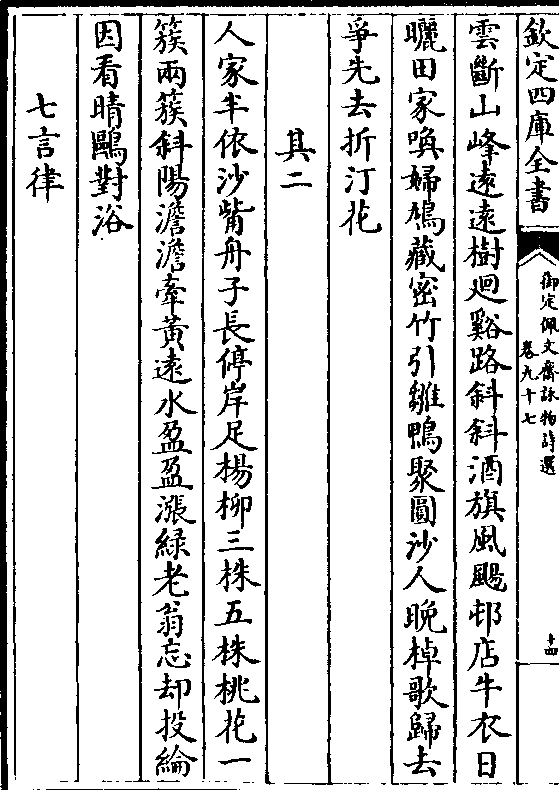 欽定四庫全書
御定佩文齋詠物詩選
卷九十七
十四
雲斷山峰遠遠樹迴谿路斜斜酒旗風颺邨店牛衣日
曬田家喚婦鳩藏密竹引雛鴨聚圓沙人晚棹歌歸去
爭先去折汀花
其二
人家半依沙觜舟子長停岸足楊柳三株五株桃花一
簇兩簇斜陽澹澹牽黃遠水盈盈漲綠老翁忘却投綸
因看晴鷗對浴
七言律